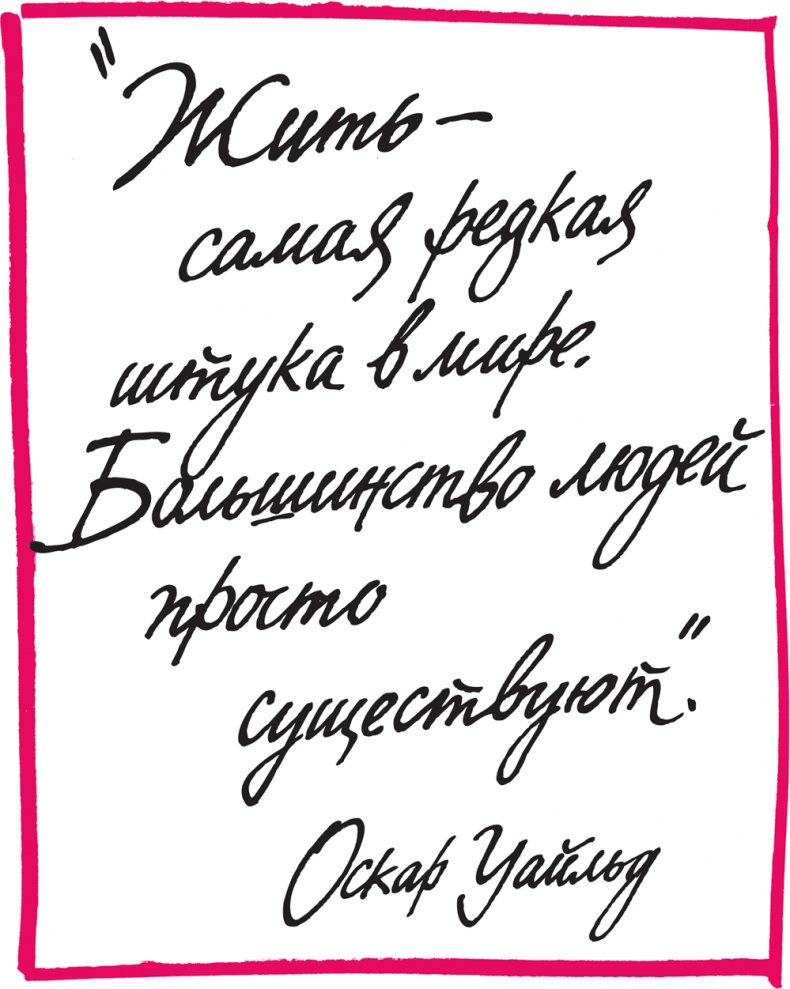 "Жить –
самая редкая
штука в мире.
Большинство людей
просто
существуют".
Оскар Уайльд